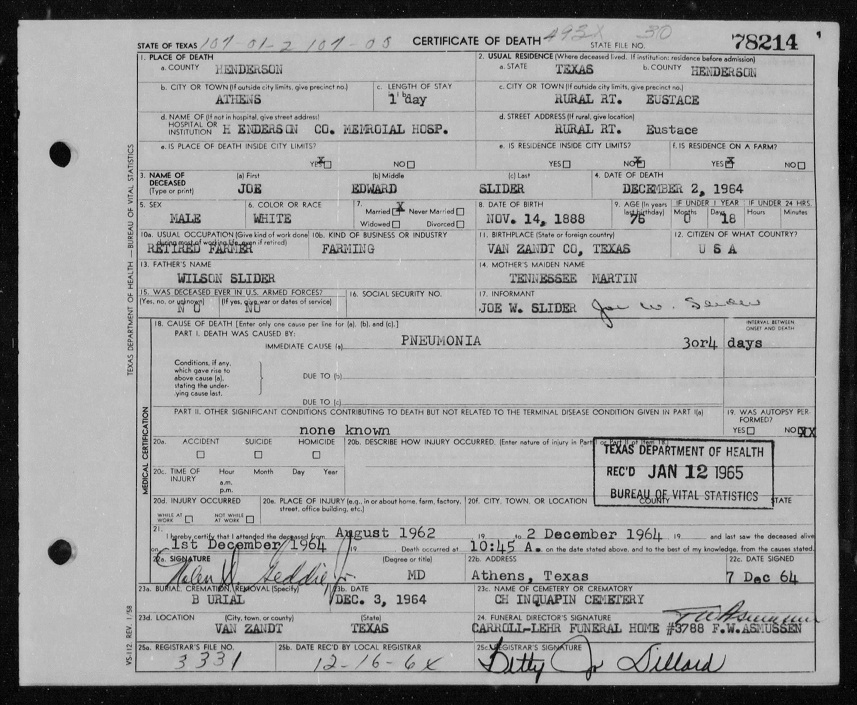 STATE OF TEXAS 107-01-2 107-05 CERTIFICATE OF DEATH 493X 30 STATE FILE NO. 78214
1. PLACE OF DEATH
a. COUNTY HENDERSON
2. USUAL RESIDENCE (Where deceased lived. If institution: residence before admission)
a. STATE TEXAS b. COUNTY HENDERSON
b. CITY OR TOWN (If outside city limits, give precinct no.)
ATHENS
c. LENGTH OF STAY
1 day
c. CITY OR TOWN (If outside city limits, give precinct no.)
RURAL RT. EUSTACE
d. NAME OF (If not in hospital, give street address)
HOSPITAL OR
INSTITUTION H ENDERSON CO. MEMROIAL HOSP.
d. STREET ADDRESS (If rural, give location)
RURAL RT. Eustace
e. IS PLACE OF DEATH INSIDE CITY LIMITS?
YES X NO
e. IS RESIDENCE INSIDE CITY LIMITS?
YES NO X
f. IS RESIDENCE ON A FARM?
YES X NO
3. NAME OF
DECEASED
(Type or print)
(a) First
JOE
(b) Middle
EDWARD
(c) Last
SLIDER
4. DATE OF DEATH
DECEMBER 2, 1964
5. SEX
MALE
6. COLOR OR RACE
WHITE
7.
Married X Never Married
Widowed Divorced
8. DATE OF BIRTH
NOV. 14, 1888
9. AGE (In years
last birthday)
76
IF UNDER 1 YEAR
Months Days
0 18
IF UNDER 24 HRS.
Hours Minutes
10a. USUAL OCCUPATION (Give kind of work done
during most of working life, even if retired)
RETIRED FARMER
10b. KIND OF BUSINESS OR INDUSTRY
FARMING
11. BIRTHPLACE (State or foreign country)
VAN ZANDT CO, TEXAS
12. CITIZEN OF WHAT COUNTRY?
U S A
13. FATHER'S NAME
WILSON SLIDER
14. MOTHER'S MAIDEN NAME
TENNESSEE MARTIN
15. WAS DECEASED EVER IN U.S. ARMED FORCES?
(Yes, no, or unknown) (If yes, give war or dates of service)
N O NO
16. SOCIAL SECURITY NO.
17. INFORMANT
JOE W. SLIDER Joe W. Slider
18. CAUSE OF DEATH [Enter only one cause per line for (a), (b), and (c).]
PART I. DEATH WAS CAUSED BY:
IMMEDIATE CAUSE (a) PNEUMONIA
INTERVAL BETWEEN
ONSET AND DEATH
3or4 days
Conditions, if any,
which gave rise to
above cause (a),
stating the under-
lying cause last.
DUE TO (b)
DUE TO (c)
PART II. OTHER SIGNIFICANT CONDITIONS CONTRIBUTING TO DEATH BUT NOT RELATED TO THE TERMINAL DISEASE CONDITION GIVEN IN PART I(a)
none known
19. WAS AUTOPSY PER-
FORMED?
YES NO XX
20a. ACCIDENT SUICIDE HOMICIDE
20b. DESCRIBE HOW INJURY OCCURRED. (Enter nature of injury in Part I or Part II of item 18.)
20c. TIME OF
INJURY
Hour Month Day Year
a.m.
p.m.
TEXAS DEPARTMENT OF HEALTH
REC'D JAN 12 1965
BUREAU OF VITAL STATISTICS
20d. INJURY OCCURRED
WHILE AT
WORK
NOT WHILE
AT WORK
20e. PLACE OF INJURY (e.g., in or about home, farm, factory,
street, office building, etc.)
20f. CITY, TOWN, OR LOCATION COUNTY STATE
21. I hereby certify that I attended the deceased from August 1962 19 to 2 December 1964 19 and last saw the deceased alive
on 1st December 1964 19 Death occurred at 10:45 A. m. on the date stated above, and to the best of my knowledge, from the causes stated.
22a. SIGNATURE (Degree or title)
Geddie, Jr MD
22b. ADDRESS
Athens, Texas
22c. DATE SIGNED
7 Dec 64
23a. BURIAL, CREMATION, REMOVAL (Specify)
B URIAL
23b. DATE
DEC. 3, 1964
23c. NAME OF CEMETERY OR CREMATORY
CH INQUAPIN CEMETERY
23d. LOCATION (City, town, or county) (State)
VAN ZANDT TEXAS
24. FUNERAL DIRECTOR'S SIGNATURE F W Asmussen
CARROLL-LEHR FUNERAL HOME #3788 F.W.ASMUSSEN
25a. REGISTRAR'S FILE NO.
3331
25b. DATE REC'D BY LOCAL REGISTRAR
12-16-64
25c. REGISTRAR'S SIGNATURE
Betty Jo Dillard
TEXAS DEPARTMENT OF HEALTH — BUREAU OF VITAL STATISTICS
MEDICAL CERTIFICATION
VS-112 REV. 1/58